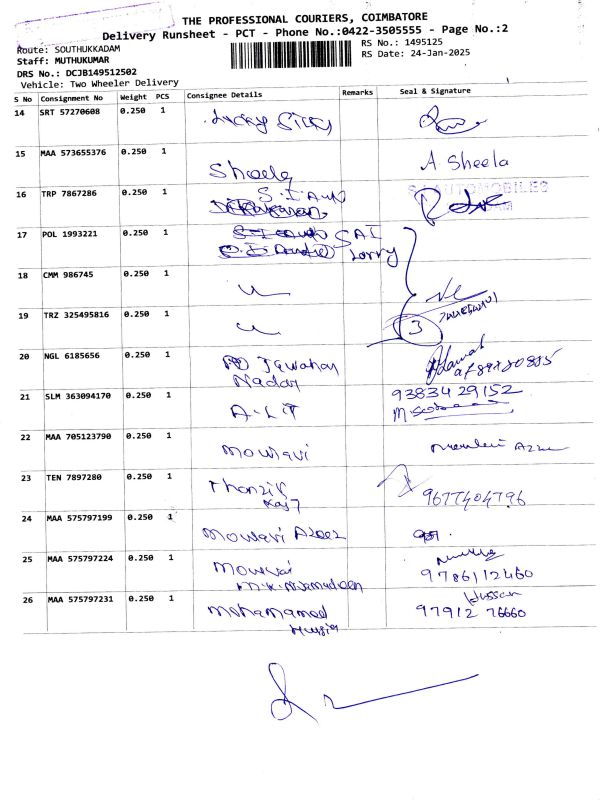 THE PROFESSIONAL COURIERS, COIMBATORE
Delivery Runsheet - PCT - Phone No.:0422-3505555 - Page No.:2
Route: SOUTHUKKADAM
RS No.: 1495125
Staff: MUTHUKUMAR
RS Date: 24-Jan-2025
DRS No.: DCJB149512502
Vehicle: Two Wheeler Delivery
S No Consignment No Weight PCS Consignee Details Remarks Seal & Signature
14 SRT 57270608 0.250 1
15 MAA 573655376 0.250 1 Sheela A Sheela
16 TRP 7867286 0.250 1 S.I Auto
17 POL 1993221 0.250 1 SAI
Lorry
18 CMM 986745 0.250 1
19 TRZ 325495816 0.250 1 3
20 NGL 6185656 0.250 1 Jawahar
Nadar
21 SLM 363094170 0.250 1 A-LIT 93834 29152
22 MAA 705123790 0.250 1 Mowlavi
23 TEN 7897280 0.250 1 9677404796
24 MAA 575797199 0.250 1 Mowlavi Azeez
25 MAA 575797224 0.250 1 9786112460
26 MAA 575797231 0.250 1 Mohamamed Hussan
97912 76660